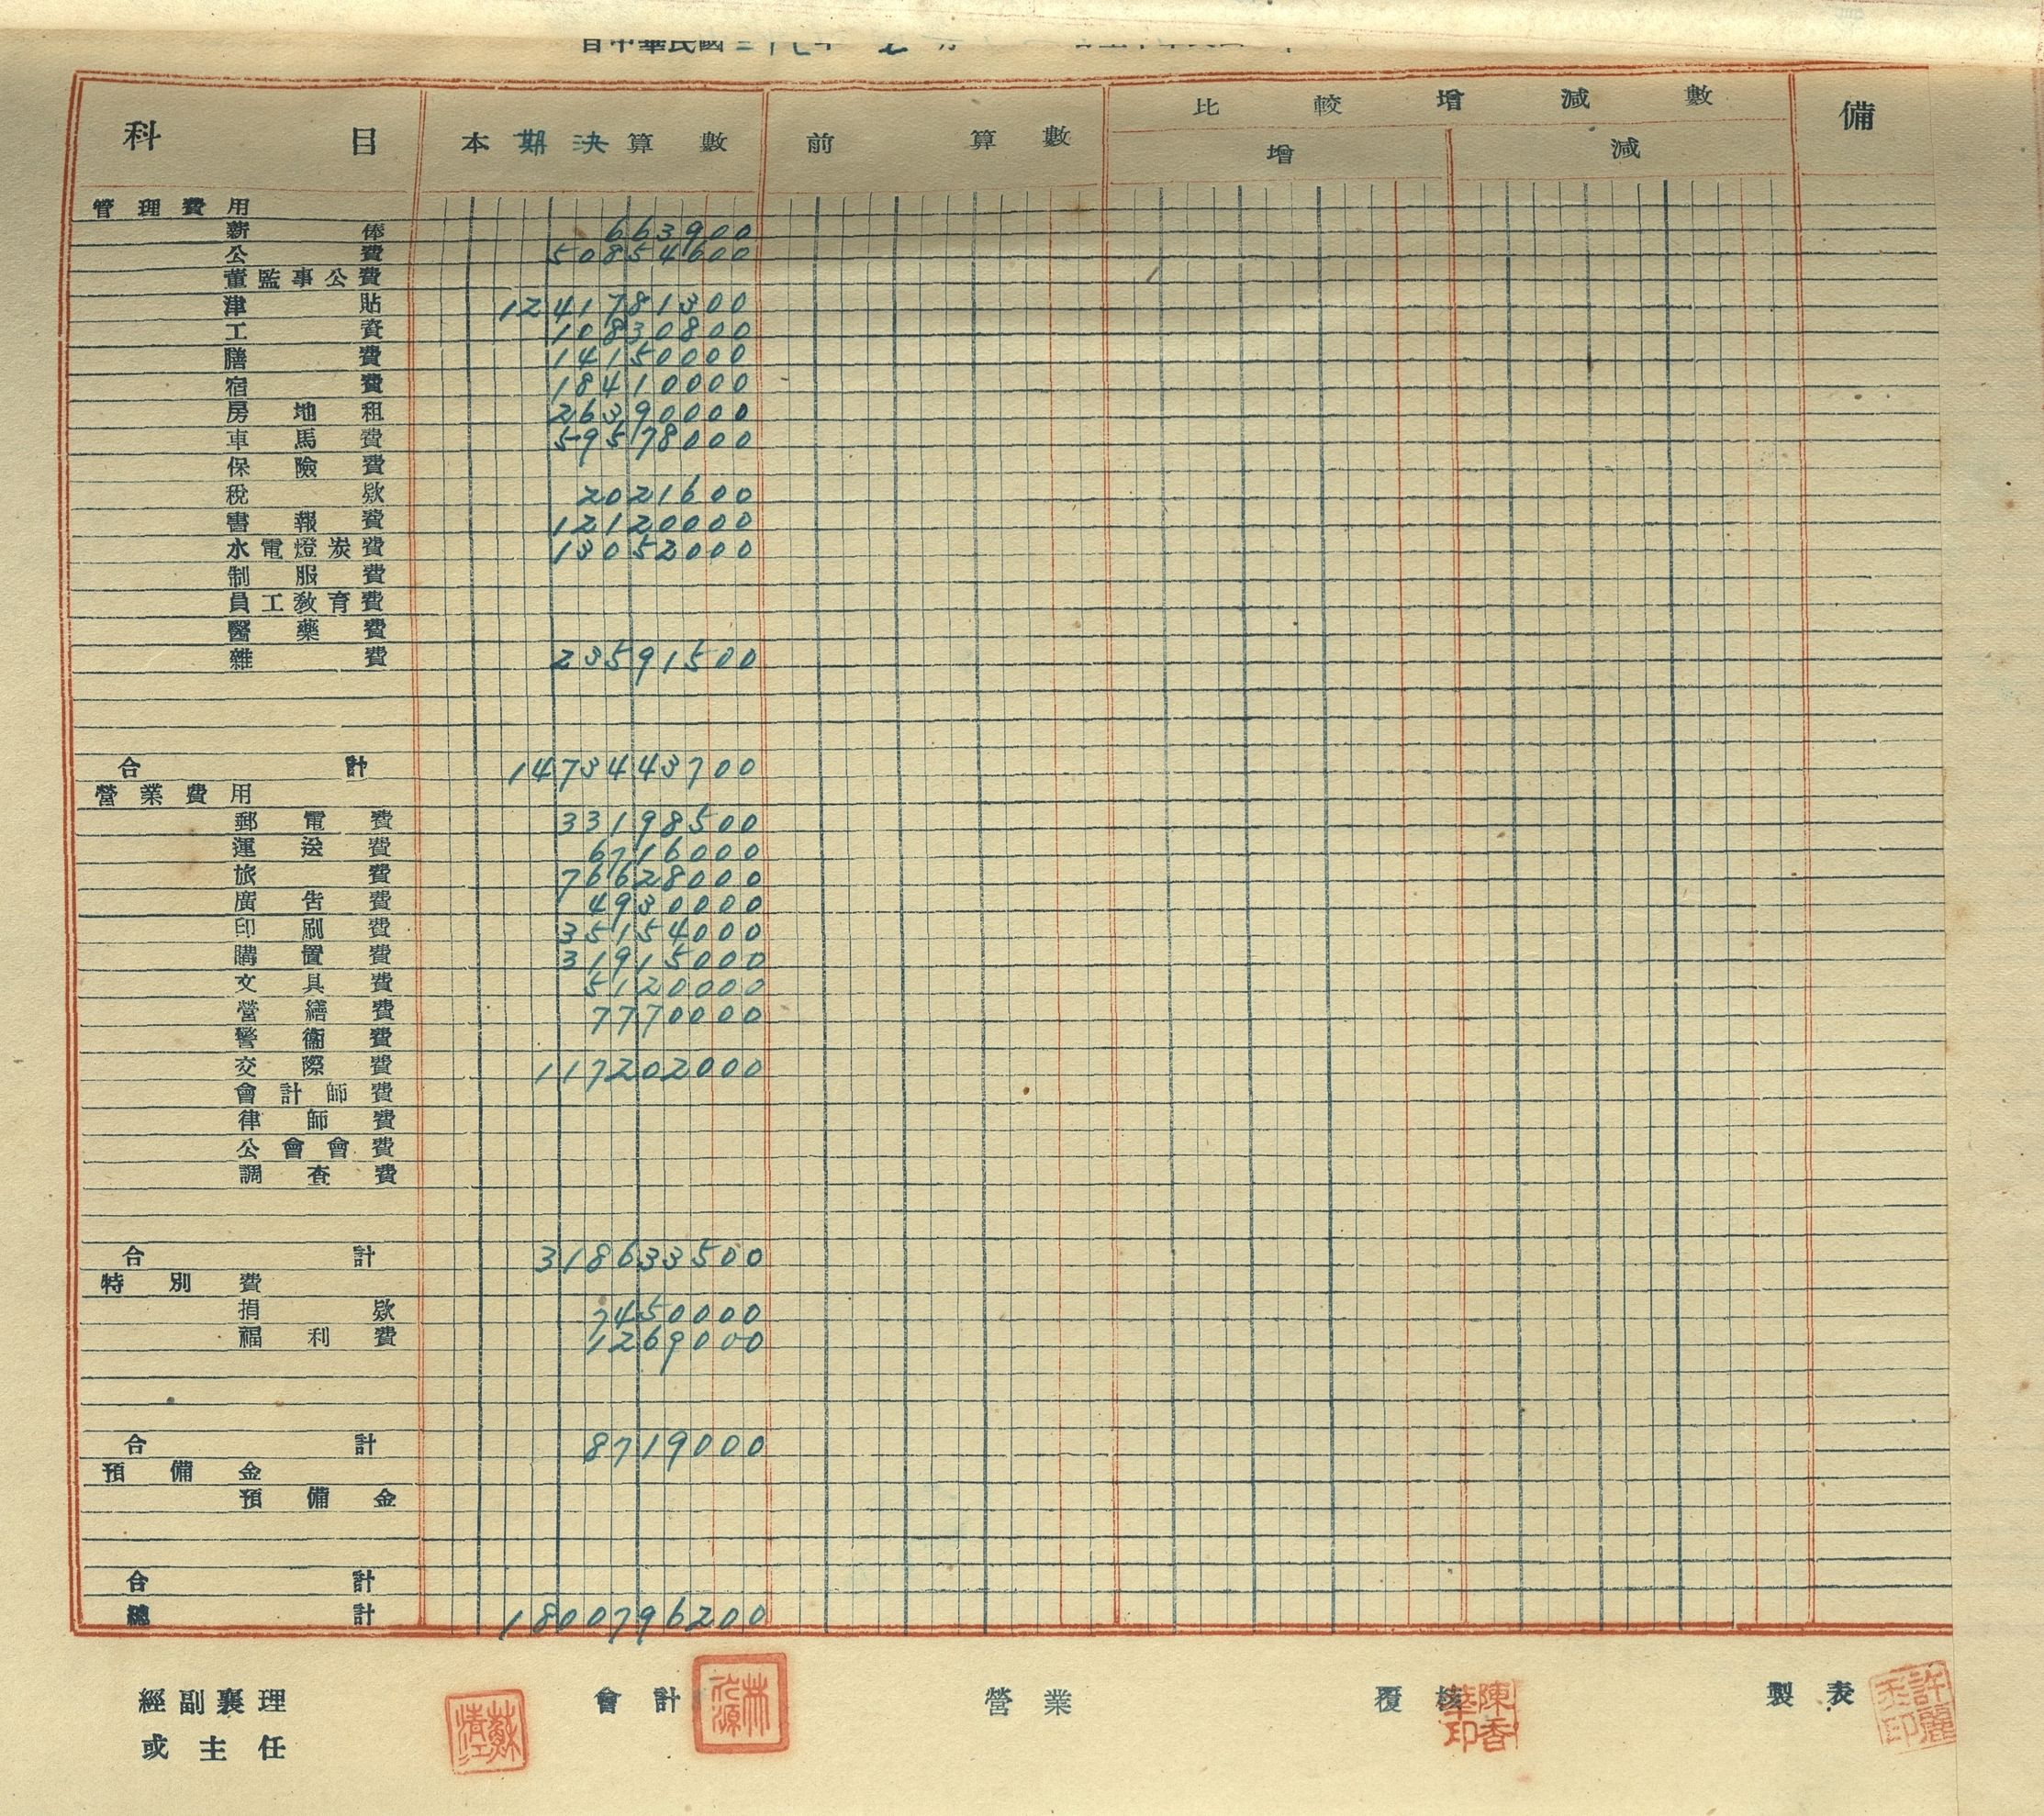 自中華民國三十七年
科目 本期決算數 前 算數 比較增減數 備
增 減
管理費用
薪俸 663900
公費 50854600
董監事公費
津貼 1241781300
工資 10830800
膳費 14150000
宿費 18410000
房地租 26390000
車馬費 59578000
保險費
稅款 2021600
書報費 12120000
水電燈炭費 13052000
制服費
員工教育費
醫藥費
雜費 23591500
合計 1473443700
營業費用
郵電費 33198500
運送費 6716000
旅費 76628000
廣告費 4930000
印刷費 35154000
購置費 31915000
文具費 5120000
營繕費 7770000
警衞費
交際費 117202000
會計師費
律師費
公會會費
調查費
合計 318633500
特別費
捐款 7450000
福利費 1269000
合計 8719000
預備金
預備金
合計
總計 1800796200
經副襄理 會計 營業 覆核 製表
或主任
蘇清江
林沅源
陳香華印